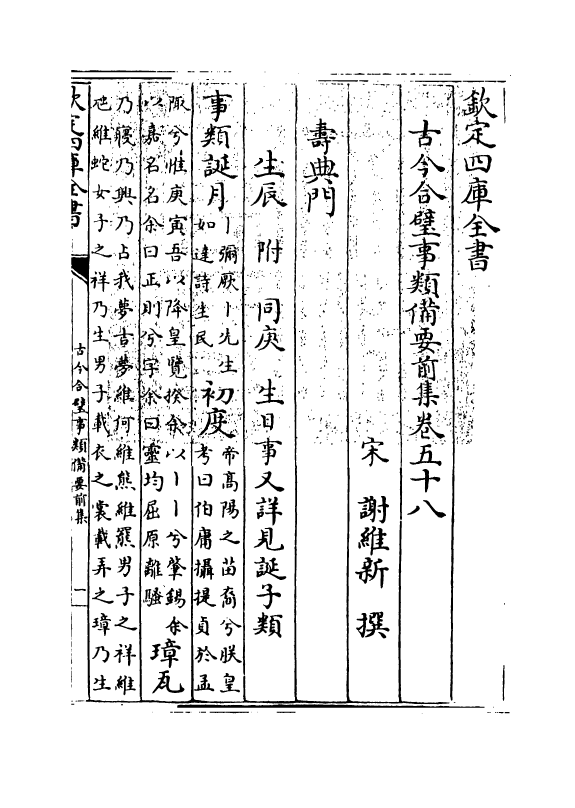 欽定四庫全書
古今合璧事類備要前集卷五十八
宋 謝維新 撰
壽典門
生辰 附 同庚 生日事又詳見誕子類
事類誕月丨彌厥丨先生如達詩生民初度帝髙陽之苗裔兮朕皇考曰伯庸攝提貞於孟
陬兮惟庚寅吾以降皇覽揆余以丨丨兮肇錫余以嘉名名余曰正則兮字余曰靈均屈原離騷璋瓦
乃寢乃興乃占我夢吉夢維何維熊維羆男子之祥維
虺維蛇女子之祥乃生男子載衣之裳載弄之璋乃生
欽定四庫全書
古今合璧事類備要前集
一